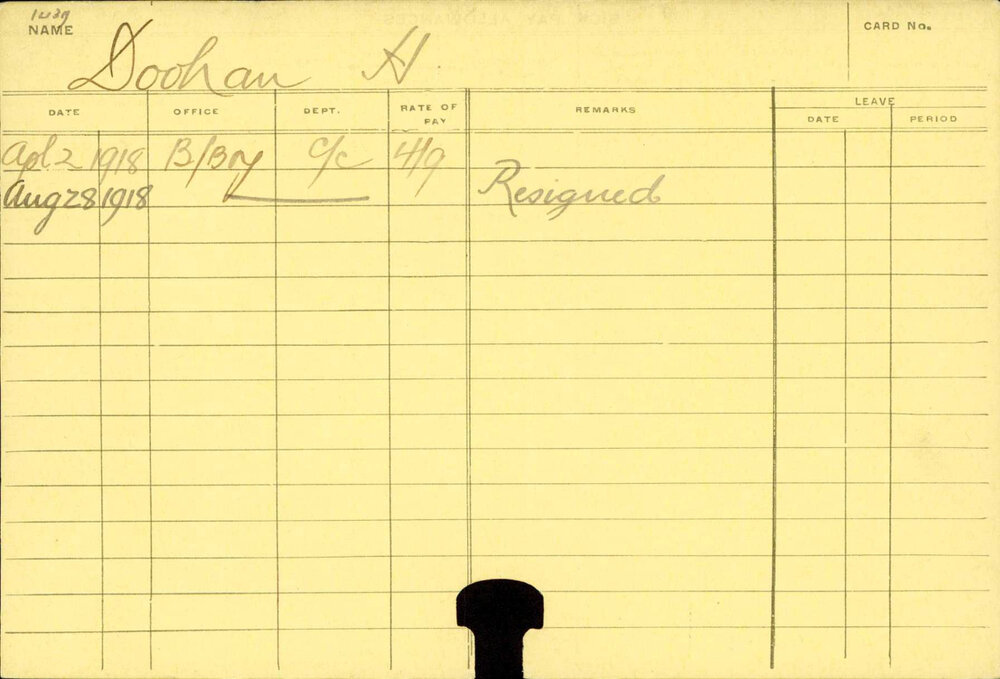 NAME
Doohan H
CARD No.
DATE OFFICE DEPT. RATE OF PAY REMARKS LEAVE
DATE PERIOD
Apl 2 1918 B/Boy C/c 4/9
Aug 28 1918 Resigned